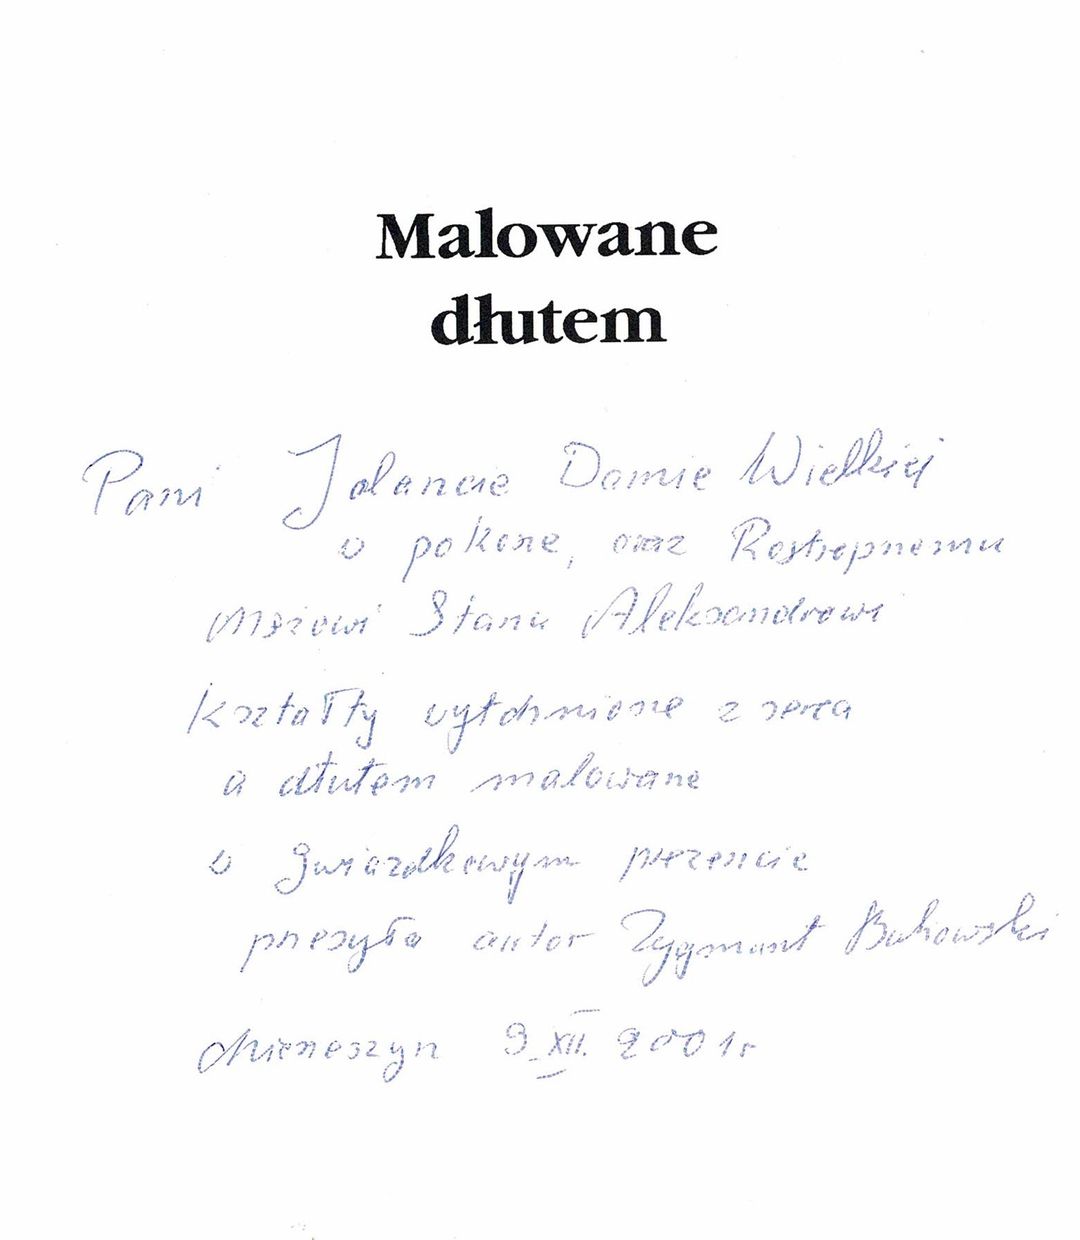 Malowane
dłutem
Pani Jolancie Damie Wielkiej
w pokorze, oraz Roztropnemu
Mężowi Stanu Aleksandrowi
kształty wytchnione z serca
a dłutem malowane
w gwiazdkowym prezencie
przesyła autor Zygmunt Bukowski
Mierzeszyn 9.XII.2001r